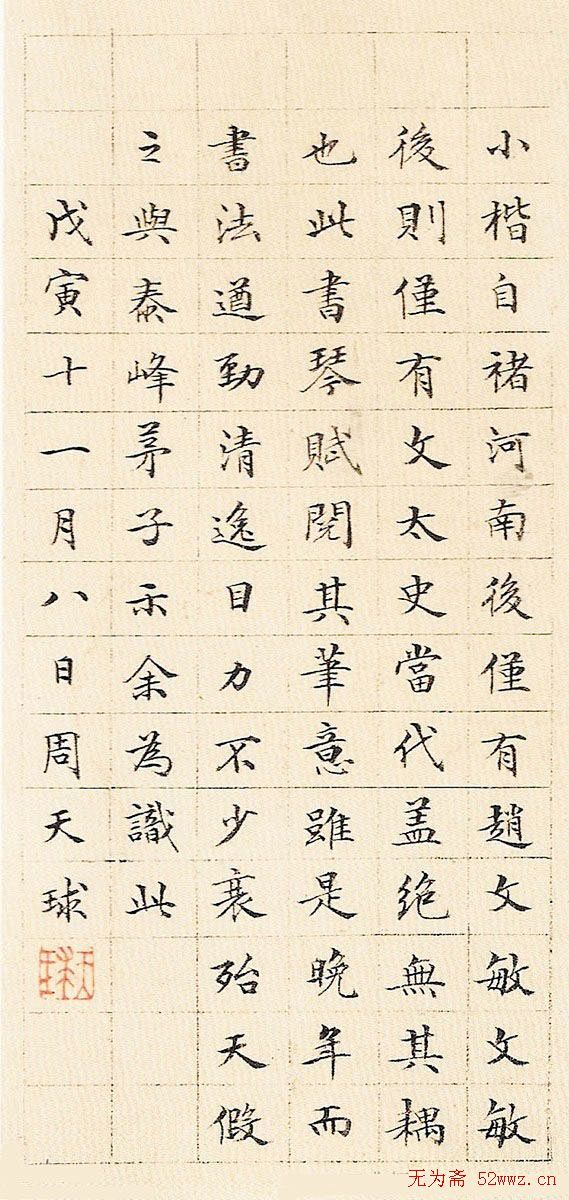 小楷自褚河南後僅有趙文敏文敏
後則僅有文太史當代盖絶無其耦
也此書琴賦閱其筆意雖是晚年而
書法遒勁清逸目力不少衰殆天假
之與泰峰茅子示余為識此
戊寅十一月八日周天球
无为斋 52wwz.cn